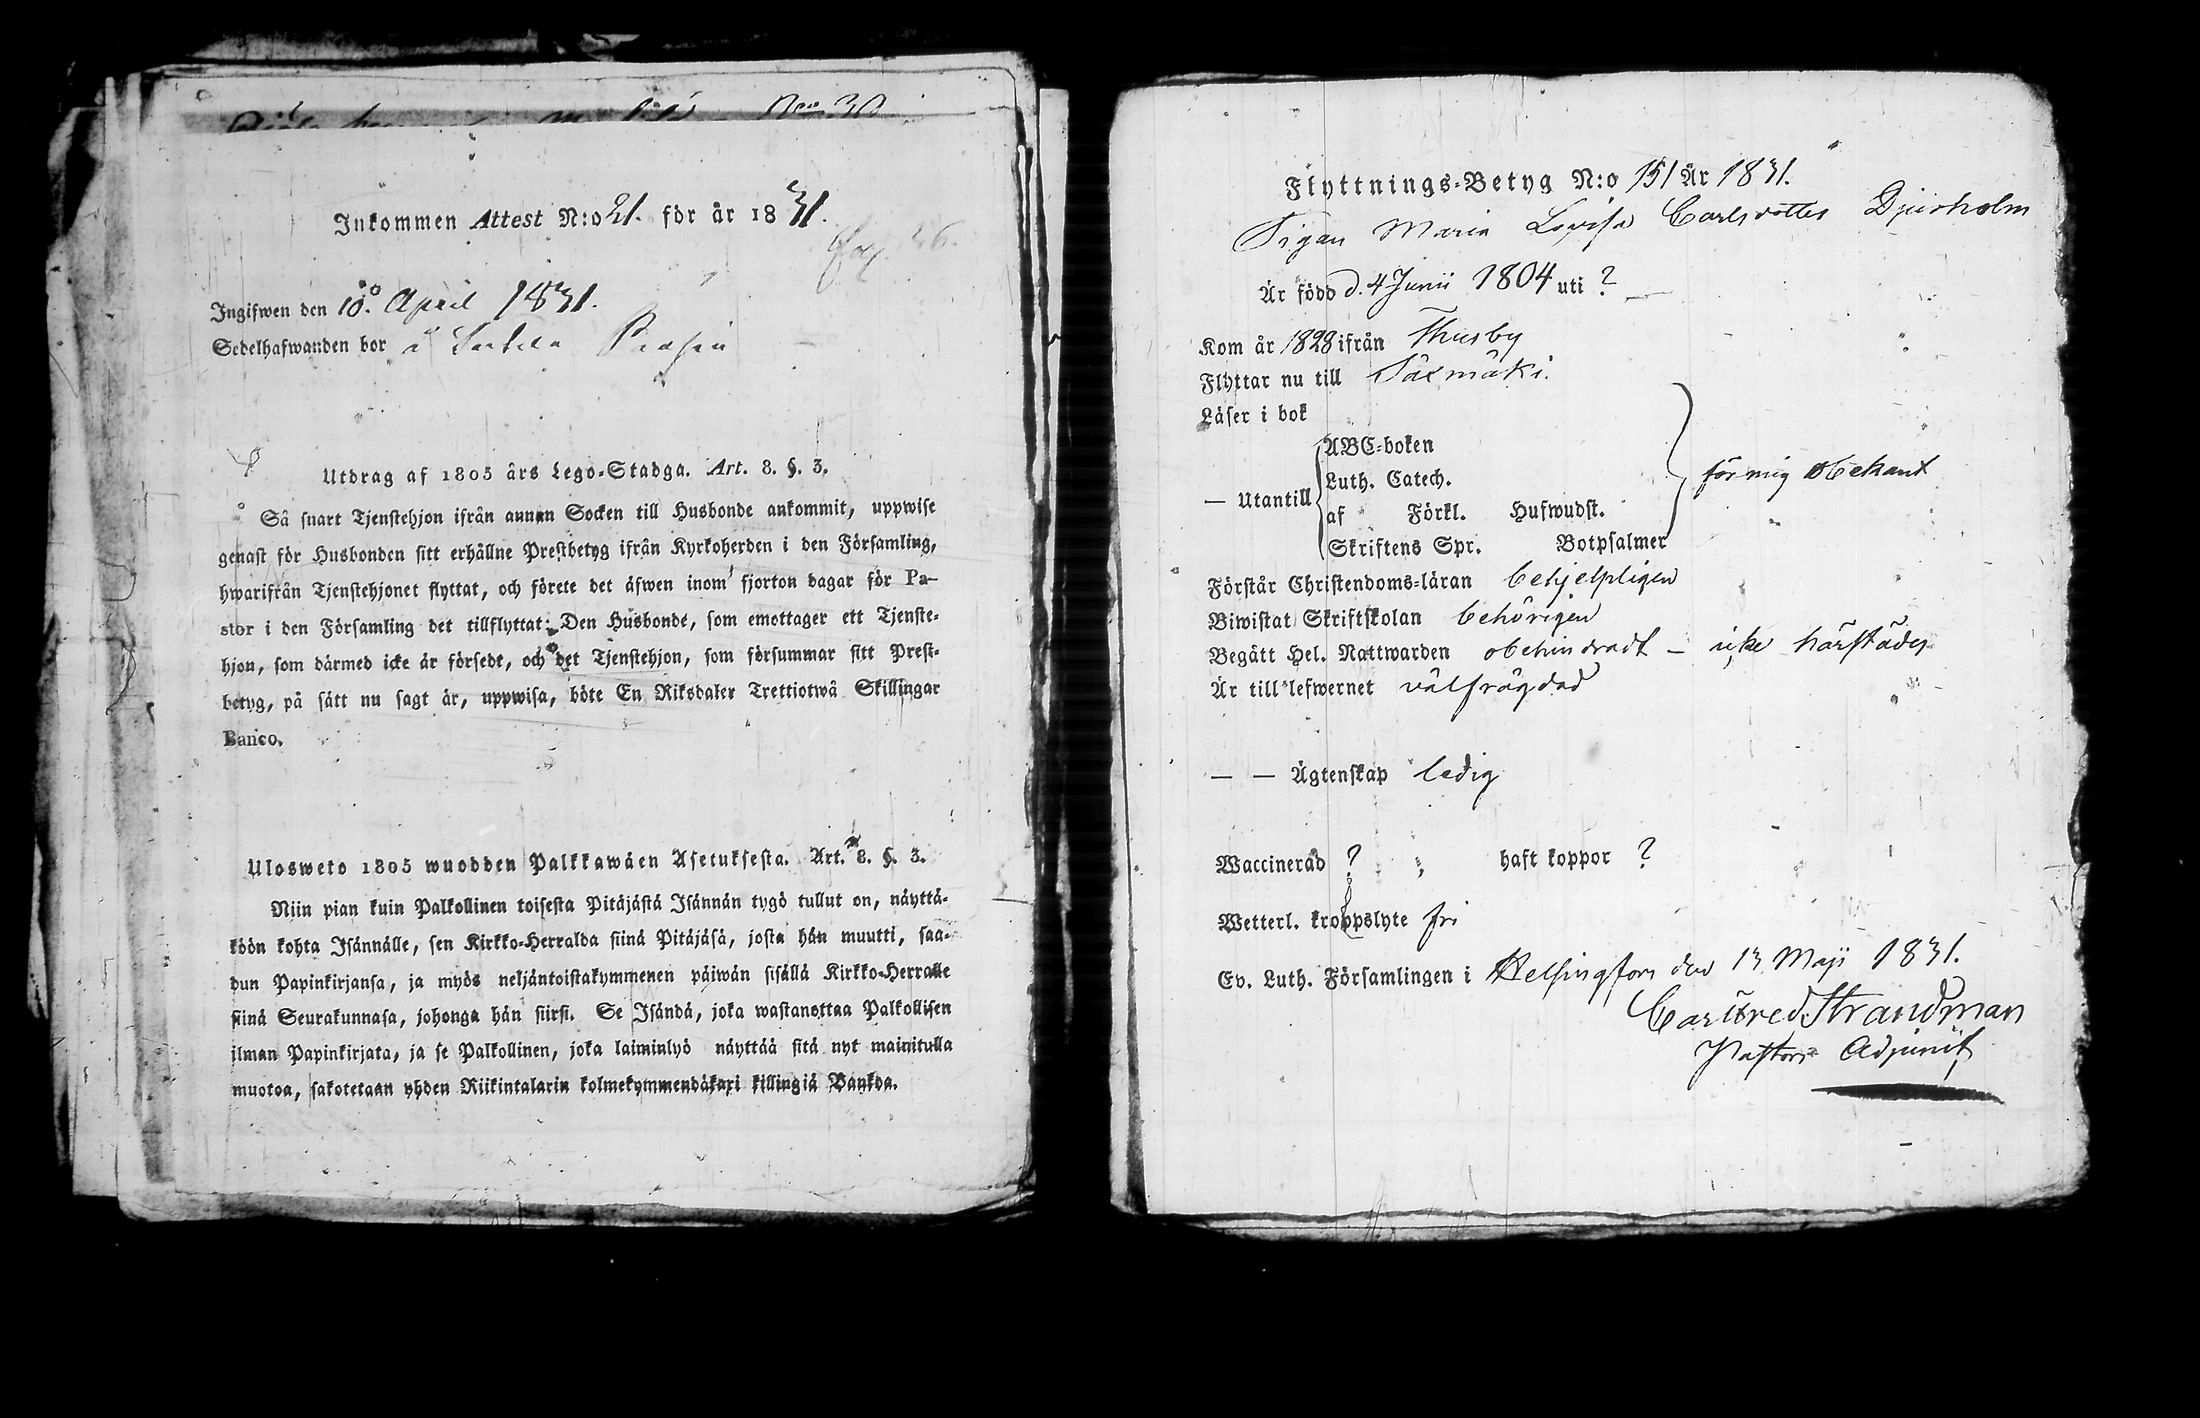 Inkommen Attest N:o 21. för år 1831.
Pag. 36.
Ingifwen den 10. April 1831.
Sedelhafwanden bor i
Utdrag af 1805 års Lego-Stadga. Art. 8. §. 3.
Så snart Tjenstehjon ifrån annan Socken till Husbonde ankommit, uppwise
genast för Husbonden sitt erhållne Prestbetyg ifrån Kyrkoherden i den Församling,
hwarifrån Tjenstehjonet flyttat, och förete det äfwen inom fjorton dagar för Pa-
stor i den Församling det tillflyttat: Den Husbonde, som emottager ett Tjenste-
hjon, som därmed icke är försedt, och det Tjenstehjon, som försummar sitt Prest-
betyg, på sätt nu sagt är, uppwisa, böte En Riksdaler Trettiotwå Skillingar
Banco.
Ulosweto 1805 wuodden Palkkawäen Asetuksesta. Art. 8. §. 3.
Niin pian kuin Palkollinen toisesta Pitäjästä Isännän tygö tullut on, näyttä-
köön kohta Isännälle, sen Kirkko-Herralda siinä Pitäjäsä, josta hän muutti, saa-
dun Papinkirjansa, ja myös neljäntoistakymmenen päiwän sisällä Kirkko-Herralle
siinä Seurakunnasa, johonga hän siirsi. Se Isändä, joka wastanottaa Palkollisen
ilman Papinkirjata, ja se Palkollinen, joka laiminlyö näyttää sitä nyt mainitulla
muotoa, sakotetaan yhden Riikintalarin kolmekymmendäkaxi killingiä Bankoa.
Flyttnings-Betyg N:o 151 År 1831.
Pigan Maria Lovisa Carlsdotter Djurholm
Är född d. 4 Junii 1804 uti ? —
Kom år 1828 ifrån Thusby
Flyttar nu till Säxmäki.
Läser i bok
— Utantill
ABC-boken
Luth. Catech.
af Förkl. Hufwudst.
Skriftens Spr. Botpsalmer
för mig obekant
Förstår Christendoms-läran behjelpligen
Biwistat Skriftskolan behörigen
Begått Hel. Nattwarden obehindradt — icke härstädes
Är till lefwernet välfrägdad
— — Ägtenskap ledig
Waccinerad ? haft koppor ?
Wetterl. kroppslyte fri
Ev. Luth. Församlingen i Helsingfors den 13 Maji 1831.
Strandman
Pastors Adjunct